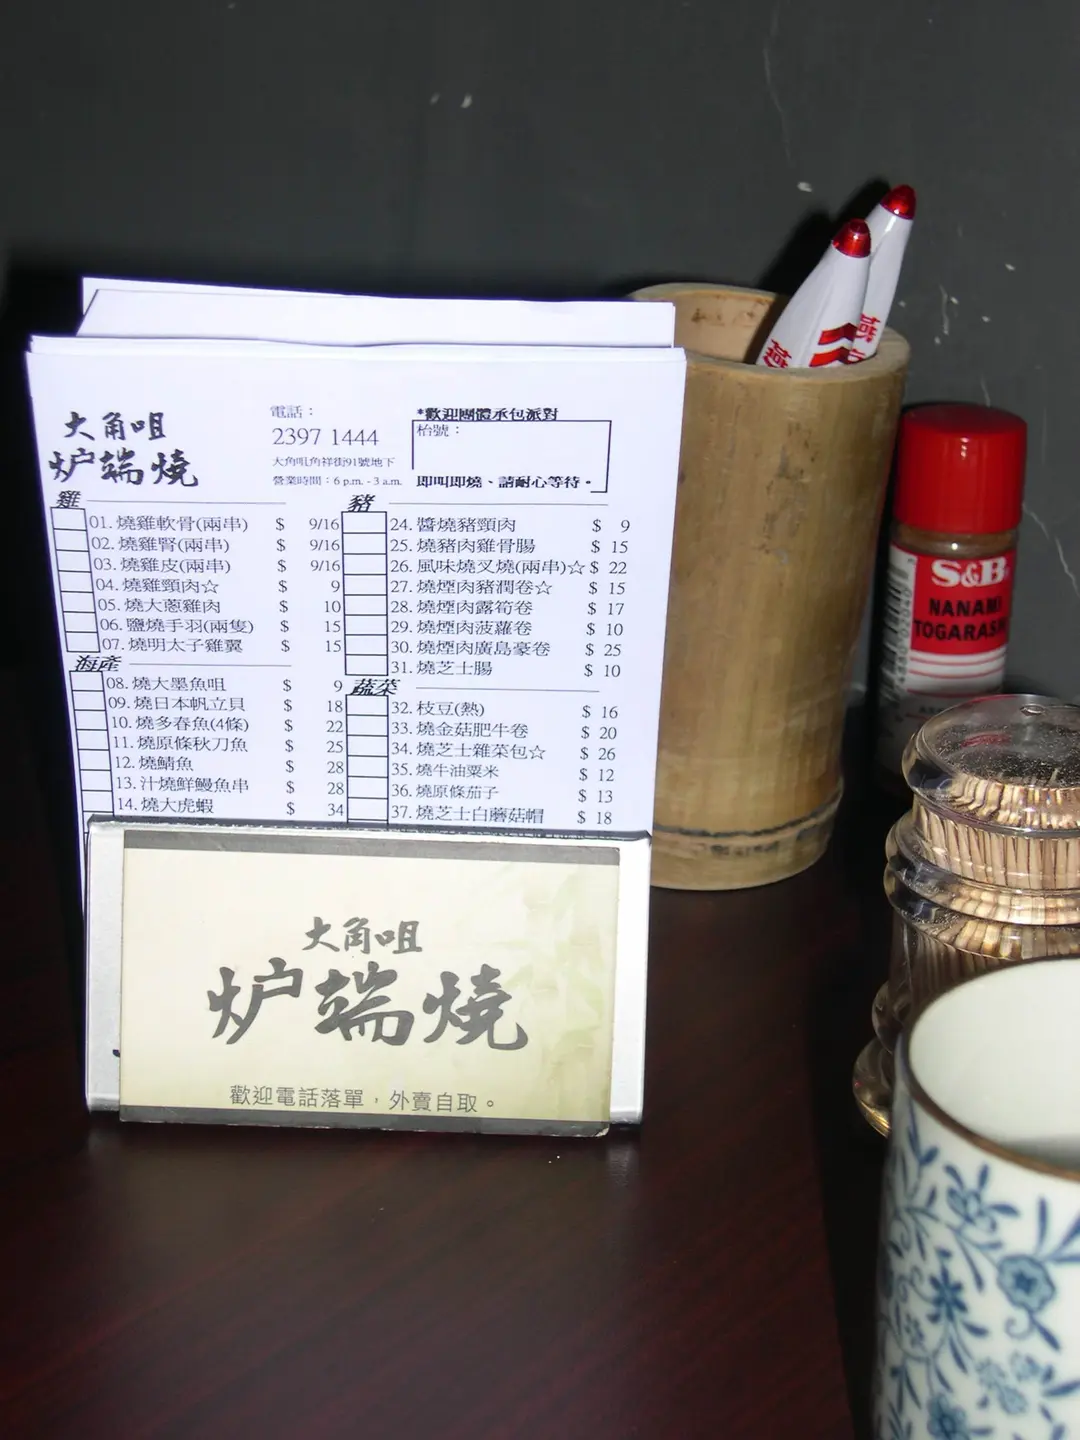 大角咀
炉端燒
電話：
2397 1444
大角咀角祥街91號地下
營業時間：6 p.m. - 3 a.m.
*歡迎團體承包派對
枱號：
即叫即燒、請耐心等待。
雞
01. 燒雞軟骨(兩串) $ 9/16
02. 燒雞腎(兩串) $ 9/16
03. 燒雞皮(兩串) $ 9/16
04. 燒雞頸肉☆ $ 9
05. 燒大蔥雞肉 $ 10
06. 鹽燒手羽(兩隻) $ 15
07. 燒明太子雞翼 $ 15
海產
08. 燒大墨魚咀 $ 9
09. 燒日本帆立貝 $ 18
10. 燒多春魚(4條) $ 22
11. 燒原條秋刀魚 $ 25
12. 燒鯖魚 $ 28
13. 汁燒鮮鰻魚串 $ 28
14. 燒大虎蝦 $ 34
豬
24. 醬燒豬頸肉 $ 9
25. 燒豬肉雞骨腸 $ 15
26. 風味燒叉燒(兩串)☆ $ 22
27. 燒煙肉豬潤卷☆ $ 15
28. 燒煙肉露筍卷 $ 17
29. 燒煙肉菠蘿卷 $ 10
30. 燒煙肉廣島豪卷 $ 25
31. 燒芝士腸 $ 10
蔬菜
32. 枝豆(熱) $ 16
33. 燒金菇肥牛卷 $ 20
34. 燒芝士雜菜包☆ $ 26
35. 燒牛油粟米 $ 12
36. 燒原條茄子 $ 13
37. 燒芝士白蘑菇帽 $ 18
大角咀
炉端燒
歡迎電話落單，外賣自取。
S&B
NANAMI
TOGARASHI